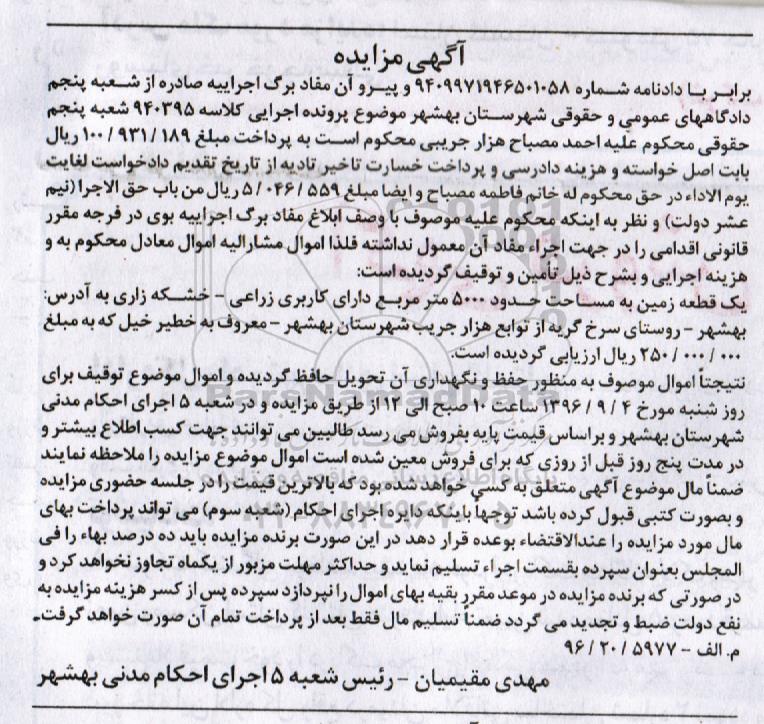 آگهی مزایده
برابر با دادنامه شماره ۹۴۰۹۹۷۱۹۴۶۵۰۱۰۵۸ و پیرو آن مفاد برگ اجراییه صادره از شعبه پنجم
دادگاههای عمومی و حقوقی شهرستان بهشهر موضوع پرونده اجرایی کلاسه ۹۴۰۳۹۵ شعبه پنجم
حقوقی محکوم علیه احمد مصباح هزار جریبی محکوم است به پرداخت مبلغ ۱۰۰/۹۳۱/۱۸۹ ریال
بابت اصل خواسته و هزینه دادرسی و پرداخت خسارت تاخیر تادیه از تاریخ تقدیم دادخواست لغایت
یوم الاداء در حق محکوم له خانم فاطمه مصباح و ایضا مبلغ ۵/۰۴۶/۵۵۹ ریال من باب حق الاجرا (نیم
عشر دولت) و نظر به اینکه محکوم علیه موصوف با وصف ابلاغ مفاد برگ اجراییه بوی در فرجه مقرر
قانونی اقدامی را در جهت اجراء مفاد آن معمول نداشته فلذا اموال مشارالیه اموال معادل محکوم به و
هزینه اجرایی و بشرح ذیل تأمین و توقیف گردیده است:
یک قطعه زمین به مساحت حدود ۵۰۰۰ متر مربع دارای کاربری زراعی - خشکه زاری به آدرس:
بهشهر - روستای سرخ گریه از توابع هزار جریب شهرستان بهشهر - معروف به خطیر خیل که به مبلغ
۲۵۰/۰۰۰/۰۰۰ ریال ارزیابی گردیده است.
نتیجتاً اموال موصوف به منظور حفظ و نگهداری آن تحویل حافظ گردیده و اموال موضوع توقیف برای
روز شنبه مورخ ۱۳۹۶/۹/۴ ساعت ۱۰ صبح الی ۱۲ از طریق مزایده و در شعبه ۵ اجرای احکام مدنی
شهرستان بهشهر و براساس قیمت پایه بفروش می رسد طالبین می توانند جهت کسب اطلاع بیشتر و
در مدت پنج روز قبل از روزی که برای فروش معین شده است اموال موضوع مزایده را ملاحظه نمایند
ضمناً مال موضوع آگهی متعلق به کسی خواهد شده بود که بالاترین قیمت را در جلسه حضوری مزایده
و بصورت کتبی قبول کرده باشد توجهاً باینکه دایره اجرای احکام (شعبه سوم) می تواند پرداخت بهای
مال مورد مزایده را عندالاقتضاء بوعده قرار دهد در این صورت برنده مزایده باید ده درصد بهاء را فی
المجلس بعنوان سپرده بقسمت اجراء تسلیم نماید و حداکثر مهلت مزبور از یکماه تجاوز نخواهد کرد و
در صورتی که برنده مزایده در موعد مقرر بقیه بهای اموال را نپردازد سپرده پس از کسر هزینه مزایده به
نفع دولت ضبط و تجدید می گردد ضمناً تسلیم مال فقط بعد از پرداخت تمام آن صورت خواهد گرفت.
م. الف - ۹۶/۲۰/۵۹۷۷
مهدی مقیمیان - رئیس شعبه ۵ اجرای احکام مدنی بهشهر
ParsNamadData